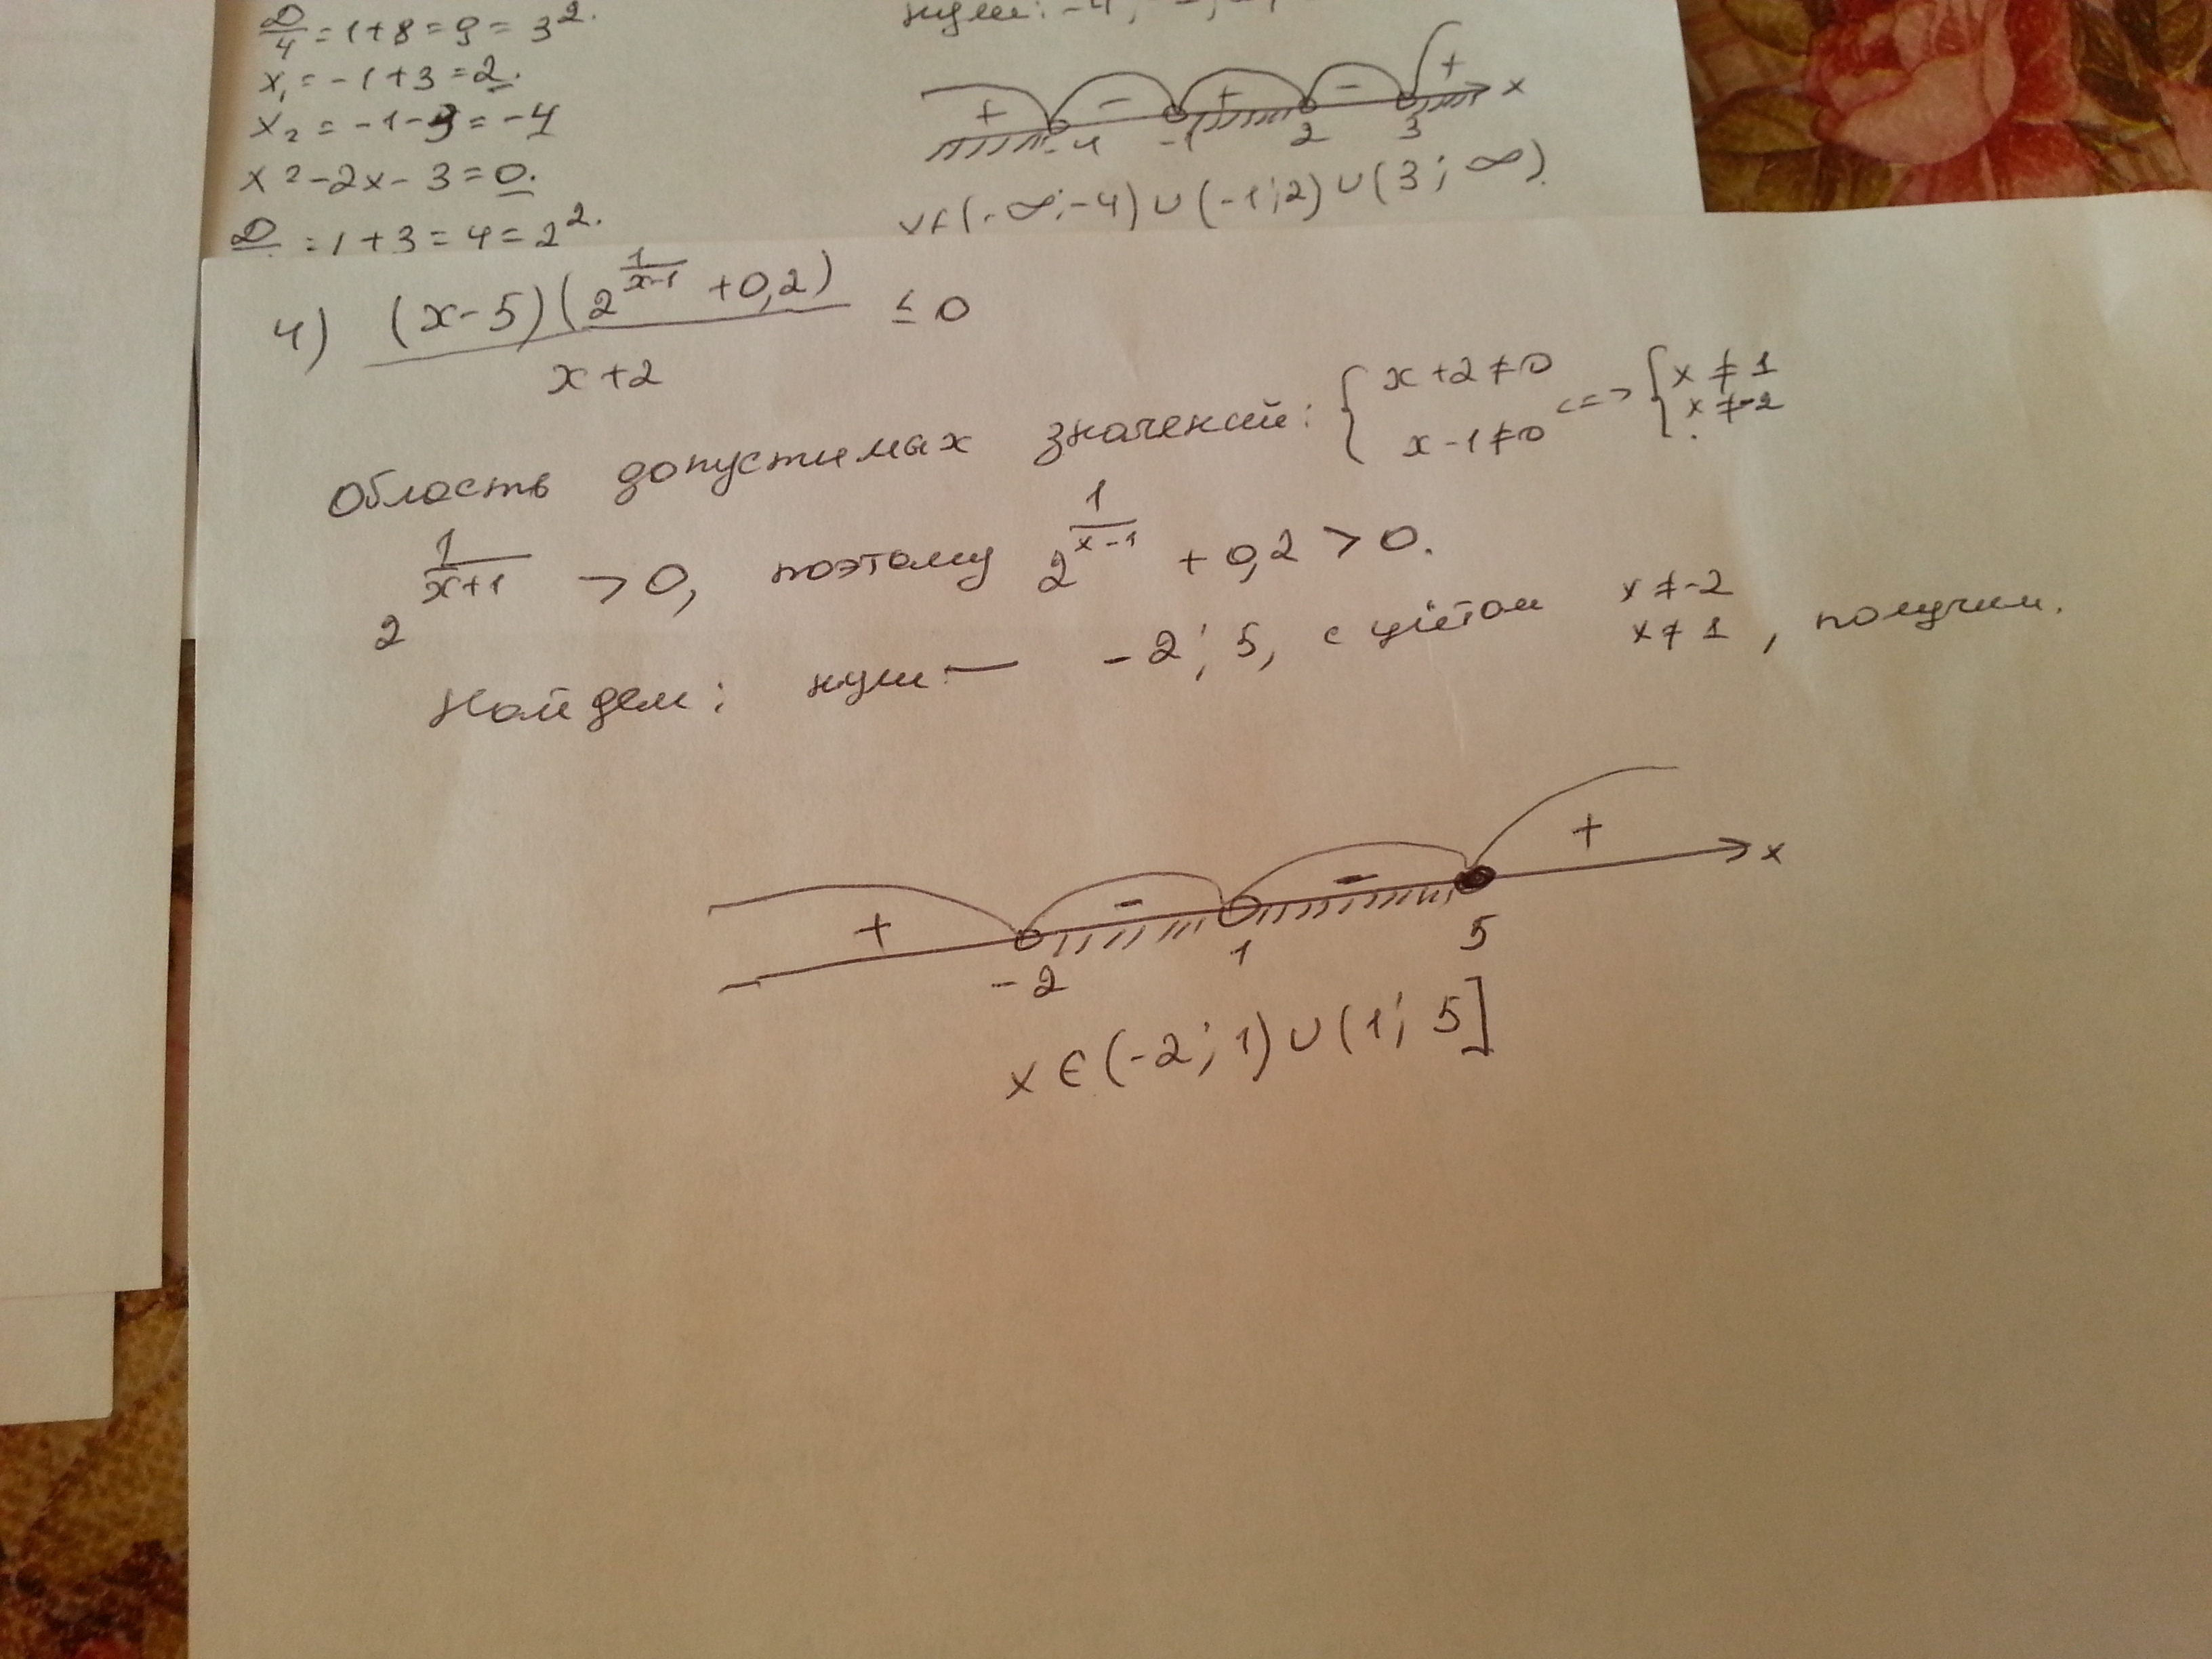 D/4 = 1+8 = 9 = 3².
x₁ = -1+3 = 2.
x₂ = -1-3 = -4
x²-2x-3=0.
D = 1+3=4=2².
+ - + - + x
-4 -1 2 3
x∈(-∞;-4)∪(-1;2)∪(3;∞).
4) (x-5)(2^(1/(x-1)) +0,2) / (x+2) ≤ 0
Область допустимых значений: { x+2≠0 x-1≠0 <=> { x≠1 x≠-2
2^(1/(x+1)) >0, поэтому 2^(1/(x-1)) +0,2>0.
Найдем: нули — -2; 5, с учётом x≠-2 x≠1, получим.
+ - - + x
-2 1 5
x∈(-2;1)∪(1;5]